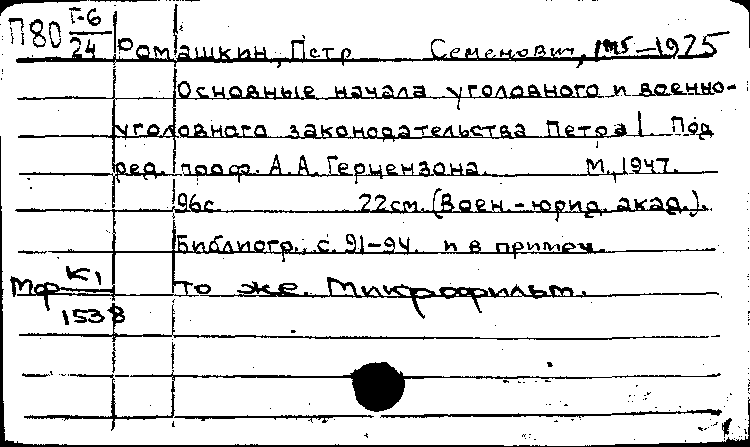 П80 Г-6/24 Ромашкин, Петр Семенович, 1915-1975
Основные начала уголовного и военно-
уголовного законодательства Петра I. Под
ред. проф. А.А. Герцензона. М., 1947.
96с. 22см. (Воен.-юрид. акад.).
Библиогр.: с. 91-94. и в примеч.
Мф К1/1538 То же. Микрофильм.